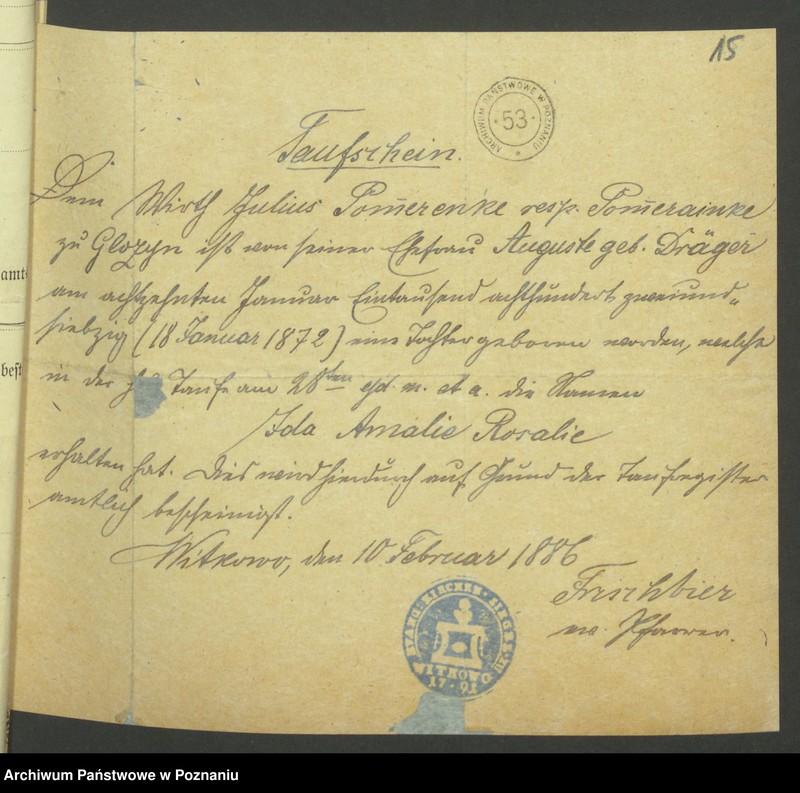 15
ARCHIWUM PAŃSTWOWE W POZNANIU
53
Taufschein.
Dem Wirth Julius Pom̄erenke resp. Pom̄erainke
zu Glozyn ist von seiner Ehefrau Auguste geb. Dräger
am achtzehnten Januar Eintausend achthundert zweiund„
siebzig (18 Januar 1872) eine Tochter geboren worden, welche
in der Taufe am 28ten ejd. m. et a. die Namen
Ida Amalie Rosalie
erhalten hat. Dies wird hierdurch auf Grund der Taufregister
amtlich bescheinigt.
Witkowo, den 10 Februar 1886
Frischbier
ev. Pfarrer.
EVANG. KIRCHEN SIEGEL ZU WITKOWO
17 - 91
amts
best
Archiwum Państwowe w Poznaniu